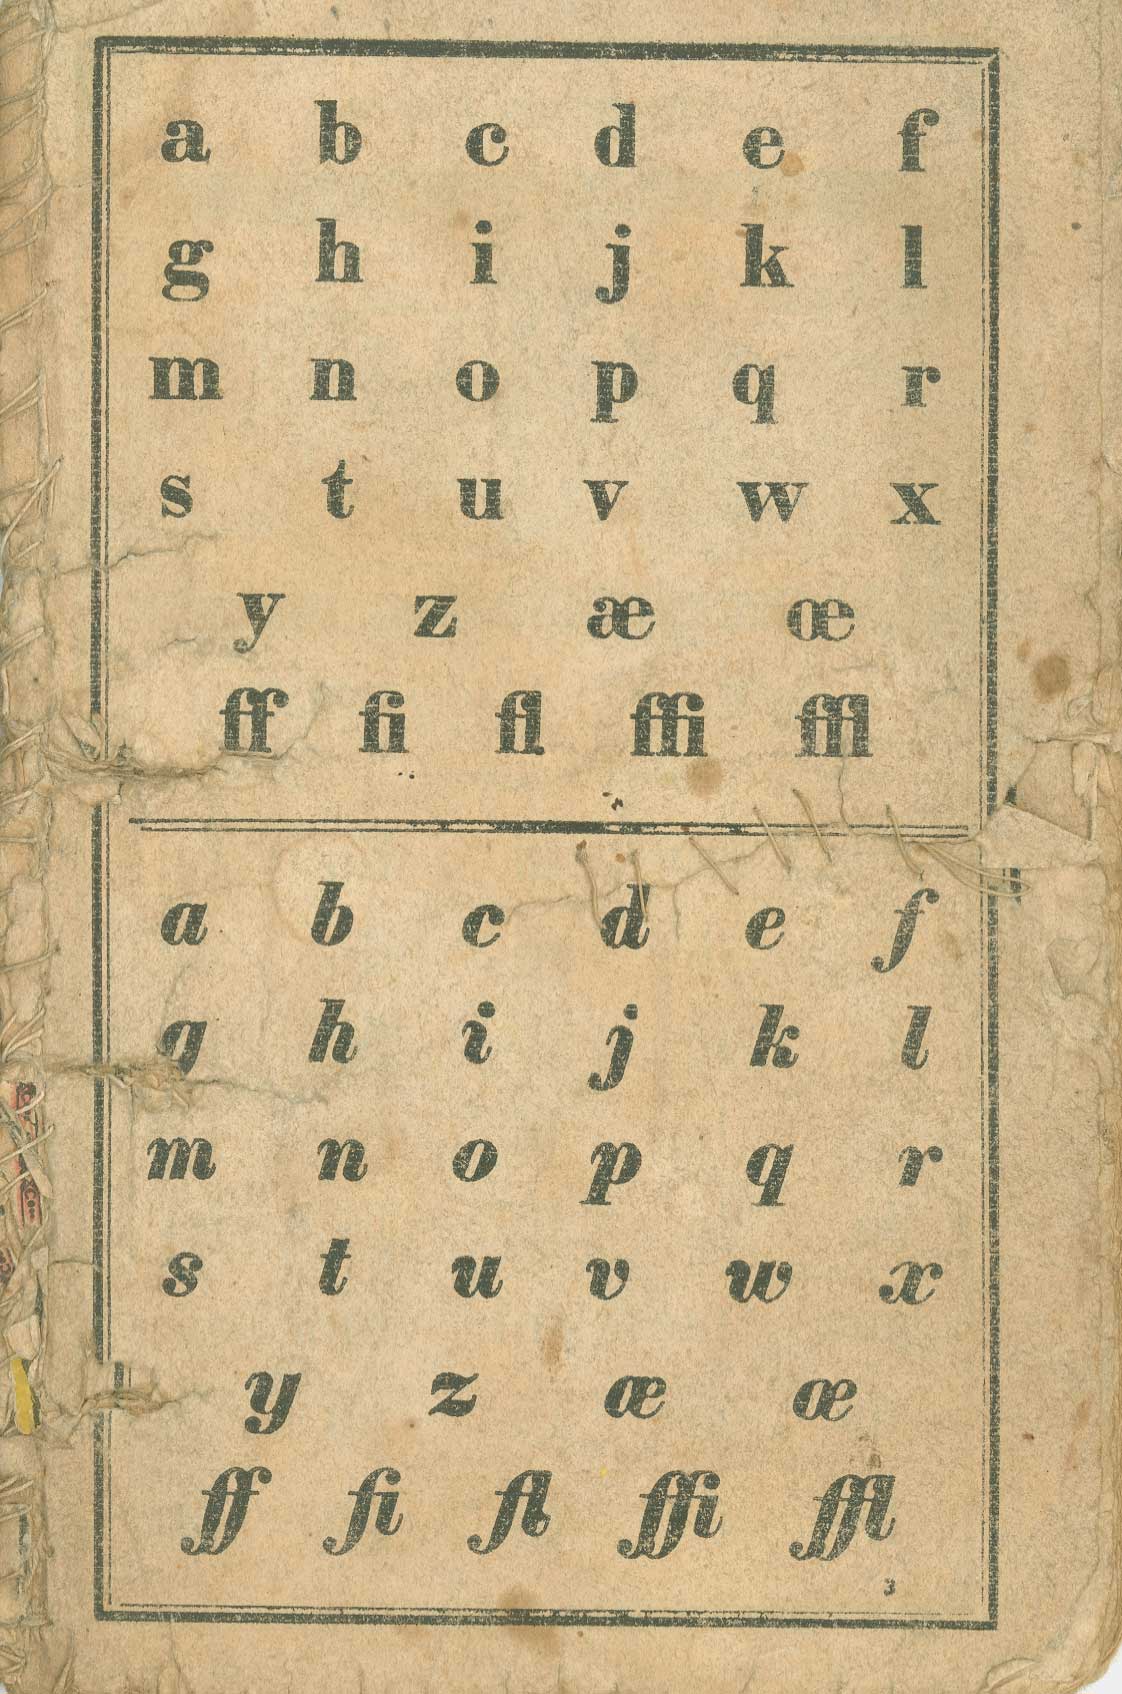 a b c d e f
g h i j k l
m n o p q r
s t u v w x
y z æ œ
ff fi fl ffi ffl
a b c d e f
g h i j k l
m n o p q r
s t u v w x
y z æ œ
ff fi fl ffi ffl
3